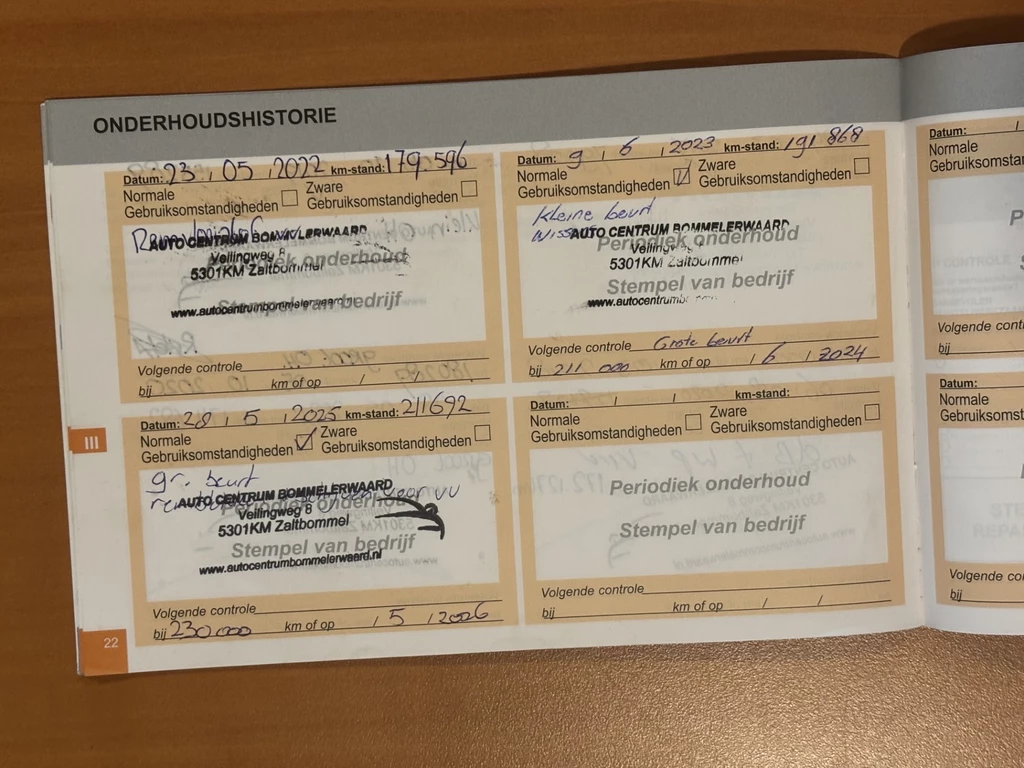 ONDERHOUDSHISTORIE
Datum: 23 / 05 / 2022 km-stand: 179.596
Normale Gebruiksomstandigheden
Zware Gebruiksomstandigheden
AUTO CENTRUM BOMMELERWAARD
Veilingweg 8
Periodiek onderhoud
5301KM Zaltbommel
Stempel van bedrijf
www.autocentrumbommelerwaard.nl
Volgende controle
bij km of op / /
Datum: 9 / 6 / 2023 km-stand: 191 868
Normale Gebruiksomstandigheden
Zware Gebruiksomstandigheden
kleine beurt
AUTO CENTRUM BOMMELERWAARD
Periodiek onderhoud
Veilingweg
5301KM Zaltbommel
Stempel van bedrijf
Volgende controle Grote beurt
bij 211 000 km of op / 6 / 2024
Datum: 28 / 5 / 2025 km-stand: 211692
Normale Gebruiksomstandigheden
Zware Gebruiksomstandigheden
gr. beurt
AUTO CENTRUM BOMMELERWAARD
Periodiek onderhoud voor vv
Veilingweg 8
5301KM Zaltbommel
Stempel van bedrijf
www.autocentrumbommelerwaard.nl
Volgende controle
bij 230.000 km of op / 5 / 2026
Datum: / / km-stand:
Normale Gebruiksomstandigheden
Zware Gebruiksomstandigheden
Periodiek onderhoud
Stempel van bedrijf
Volgende controle
bij km of op / /
III
22
Datum: /
Normale
Volgende
bij
Datum:
Normale
Volgende
bij